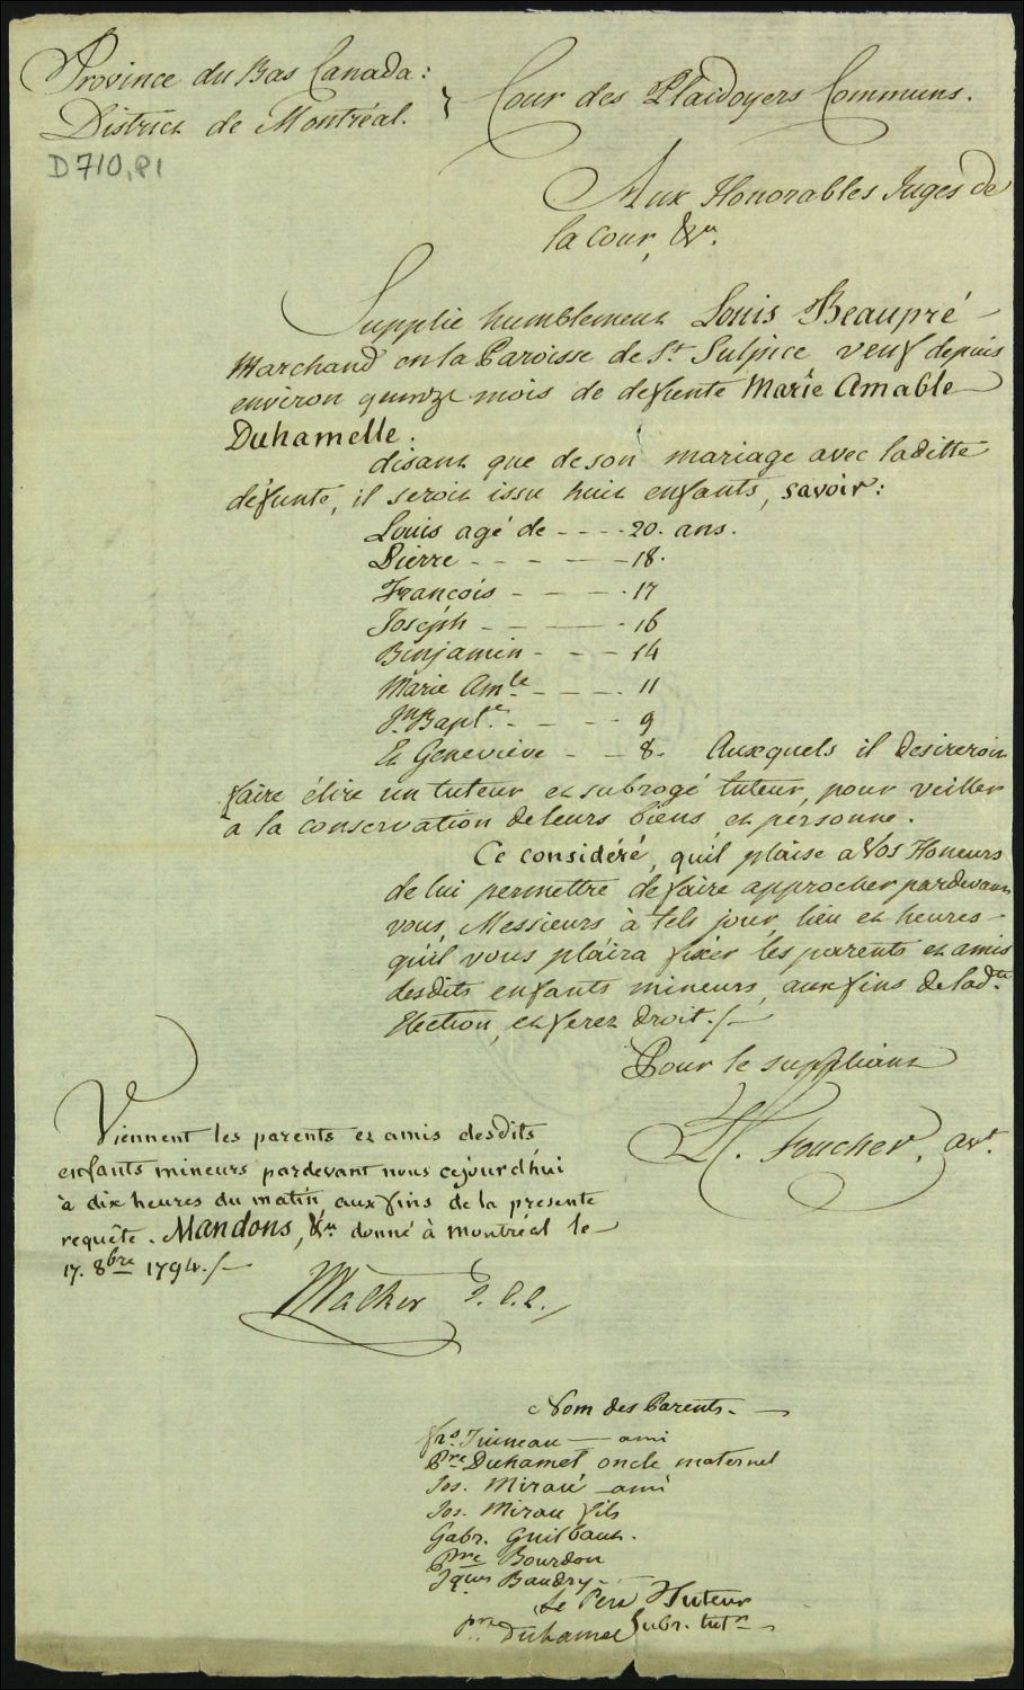 Province du Bas Canada:
District de Montréal.
Cour des Plaidoyers Communs.
D710, P1
Aux Honorables Juges de
la Cour, &a.
Supplie humblement Louis Beaupré
Marchand en la Paroisse de St. Sulpice veuf depuis
environ quinze mois de defunte Marie Amable
Duhamelle.
disant que de son mariage avec laditte
défunte, il seroit issu huit enfants, savoir:
Louis agé de - - - - 20. ans.
Pierre - - - - - 18.
François - - - - 17
Joseph - - - - 16
Benjamin - - - 14
Marie Amle - - - - 11
Jn. Bapte. - - - - 9
Et Geneviéve - - 8. Auxquels il desireroit
faire élire un tuteur et subrogé tuteur, pour veiller
à la conservation de leurs biens et personne.
Ce considéré, qu'il plaise a Vos Honeurs
de lui permettre de faire approcher pardevant
vous, Messieurs, à tels jour, lieu et heures
qu'il vous plaira fixer les parents et amis
desdits enfants mineurs, aux fins de lad.te
Election, et ferez droit./—
Pour le suppliant
L. Foucher, avt.
Viennent les parents et amis desdits
enfants mineurs pardevant nous cejourd'hui
à dix heures du matin, aux fins de la presente
requête. Mandons, &a. donné à Montréal le
17. 8bre 1794./—
Walker J. C. C.
Nom des Parents. —
frs. Juineau — ami
Pre Duhamel oncle maternel
Jos. Mirau — ami
Jos. Mirau fils
Gabr. Guilbaut.
Pre Bourdon
Jques Baudry
Le Pere Tuteur
pre Duhamel Subr. tutr